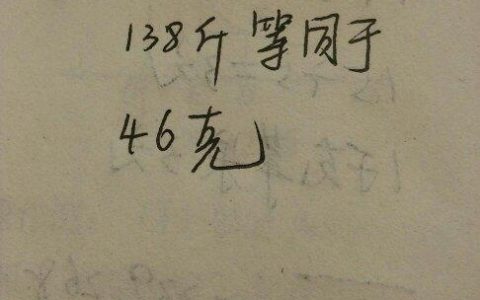 138斤等同于
46克